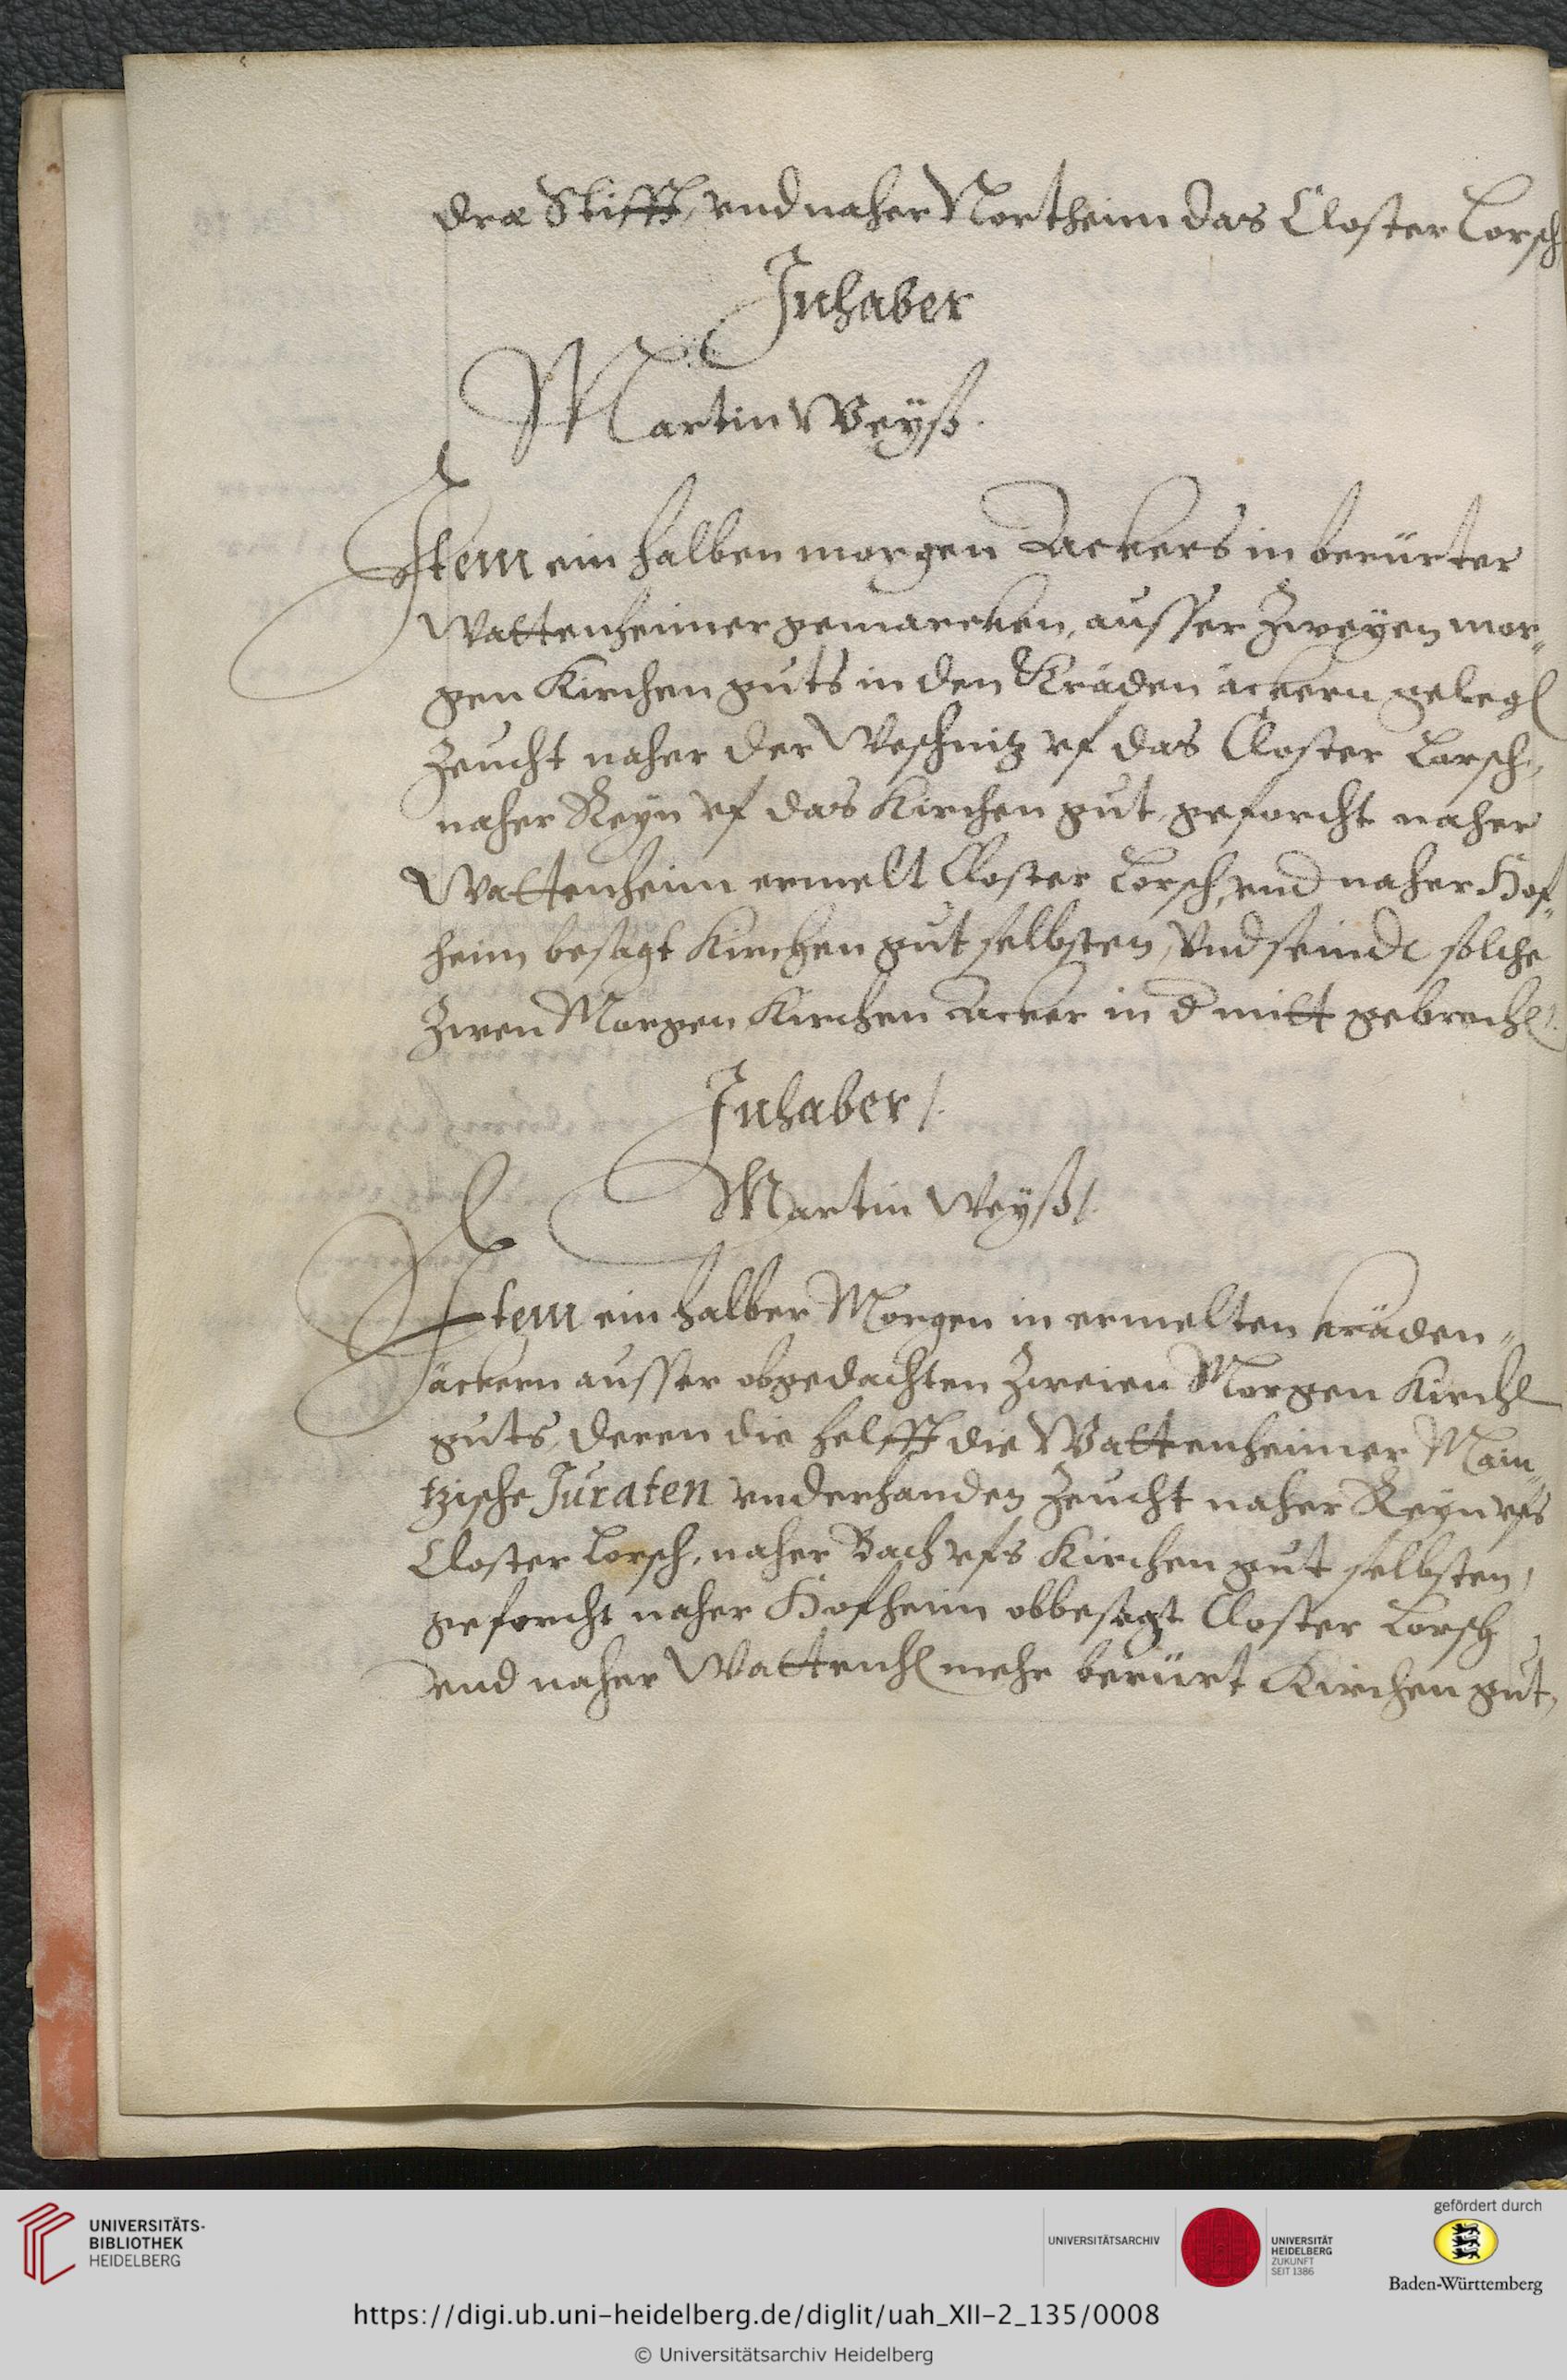 dræ Stifft, vnd naher Northeim das Closter Lorsch
Inhaber
Martin Weyß.
Item ein halben morgen Ackers in berürter
Wattenheimer gemarcken, ausser Zweyen mor„
gen Kirchen guts in den Kräden äckern geleg
Zeucht naher der Weschnitz vf das Closter Lorsch,
naher Reyn vf das Kirchen gut, geforcht naher
Wattenheim ermelt Closter Lorsch, vnd naher Hof„
heim besagt Kirchen gut selbsten, Vnd seindt solche
Zwen Morgen Kirchen Acker in d mitt gebroch
Inhaber /.
Martin Weyß /.
Item ein halber Morgen in ermelten kräden„
äckern ausser obgedachten Zweien Morgen Kirch
guts, deren die helfft die Wattenheimer Main„
tzische Juraten vnderhanden Zeucht naher Reyn vfs
Closter Lorsch, naher Bach vfs Kirchen gut selbsten,
geforcht naher Hofheim obbesagt Closter Lorsch
vnd naher Wattenh mehr berürt Kirchen gut,
UNIVERSITÄTS-
BIBLIOTHEK
HEIDELBERG
UNIVERSITÄTSARCHIV
UNIVERSITÄT
HEIDELBERG
ZUKUNFT
SEIT 1386
gefördert durch
Baden-Württemberg
https://digi.ub.uni-heidelberg.de/diglit/uah_XII-2_135/0008
© Universitätsarchiv Heidelberg